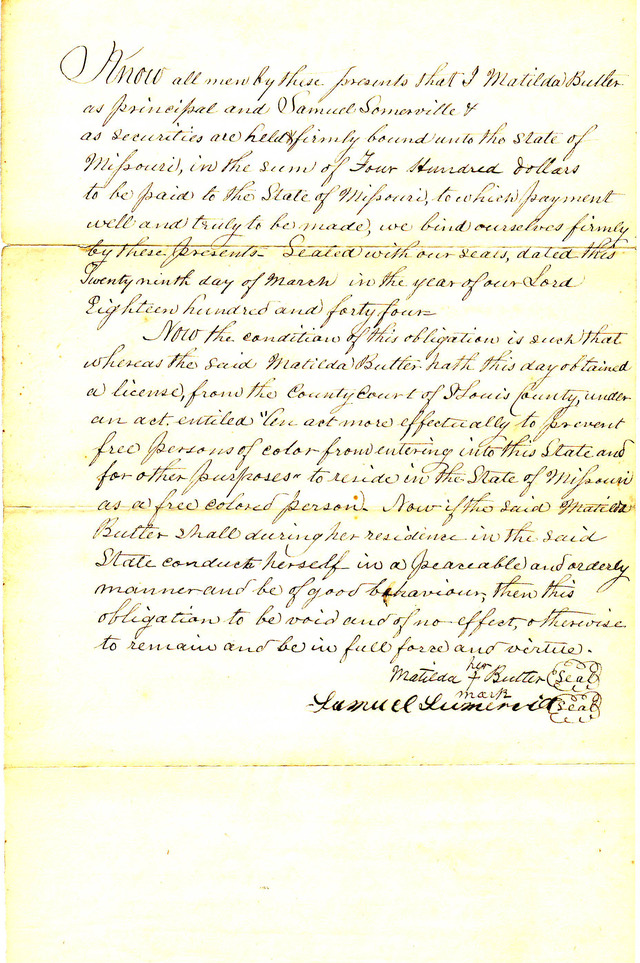 Know all men by these presents that I Matilda Butler
as principal and Samuel Somerville &
as securities are held & firmly bound unto the State of
Missouri, in the sum of Four Hundred Dollars
to be paid to the State of Missouri, to which payment
well and truly to be made, we bind ourselves firmly
by these Presents- Sealed with our seals, dated this
Twenty ninth day of March in the year of our Lord
Eighteen hundred and forty four=
Now the condition of this obligation is such that
whereas the said Matilda Butler hath this day obtained
a license, from the County Court of St Louis County, under
an act entiled "An act more effectually to prevent
free persons of color from entering into this State and
for other purposes" to reside in the State of Missouri
as a free colored person. Now if the said Matilda
Butler shall during her residence in the said
State conduct herself in a peaceable and orderly
manner and be of good behaviour, then this
obligation to be void and of no effect, otherwise
to remain and be in full force and virtue.
her
Matilda + Butler Seal
mark
Samuel Sumervil Seal